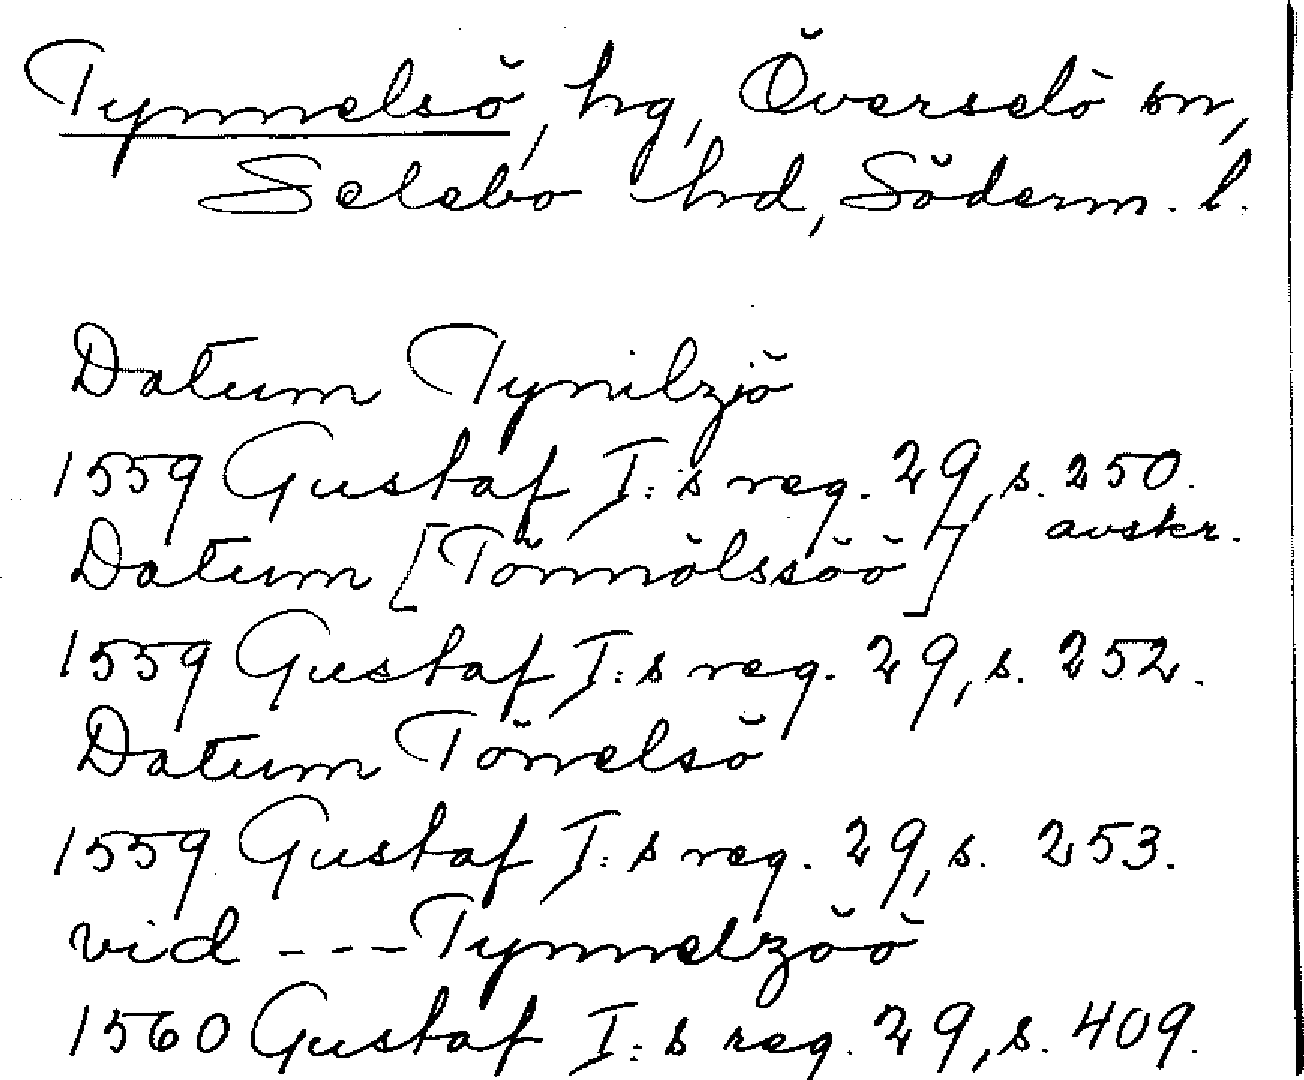 Tynnelsö, hg, Överselö sn,
Selebo hd, Söderm. l.
Datum Tynilzjö
1559 Gustaf I:s reg. 29, s. 250.
avskr.
Datum [Tönnölssöö]
1559 Gustaf I:s reg. 29, s. 252.
Datum Tönelsö
1559 Gustaf I:s reg. 29, s. 253.
vid --- Tynnelzöö
1560 Gustaf I:s reg. 29, s. 409.